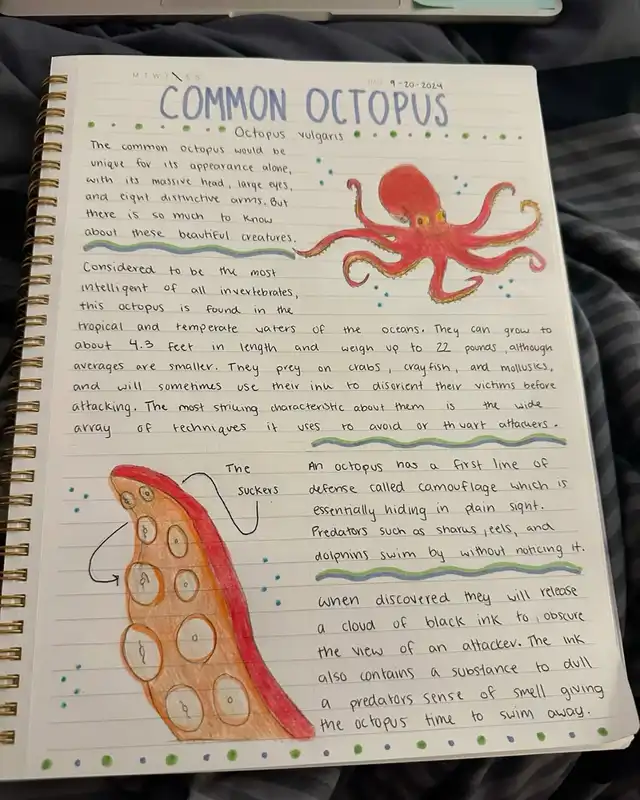 M T W T F S S
9-20-2024
COMMON OCTOPUS
Octopus vulgaris
The common octopus would be
unique for its appearance alone,
with its massive head, large eyes,
and eight distinctive arms. But
there is so much to know
about these beautiful creatures.
Considered to be the most
intelligent of all invertebrates,
this octopus is found in the
tropical and temperate waters of the oceans. They can grow to
about 4.3 feet in length and weigh up to 22 pounds, although
averages are smaller. They prey on crabs, crayfish, and mollusks,
and will sometimes use their ink to disorient their victims before
attacking. The most striking characteristic about them is the wide
array of techniques it uses to avoid or thwart attackers.
The
suckers
An octopus has a first line of
defense called camouflage which is
essentially hiding in plain sight.
Predators such as sharks, eels, and
dolphins swim by without noticing it.
When discovered they will release
a cloud of black ink to obscure
the view of an attacker. The ink
also contains a substance to dull
a predators sense of smell giving
the octopus time to swim away.